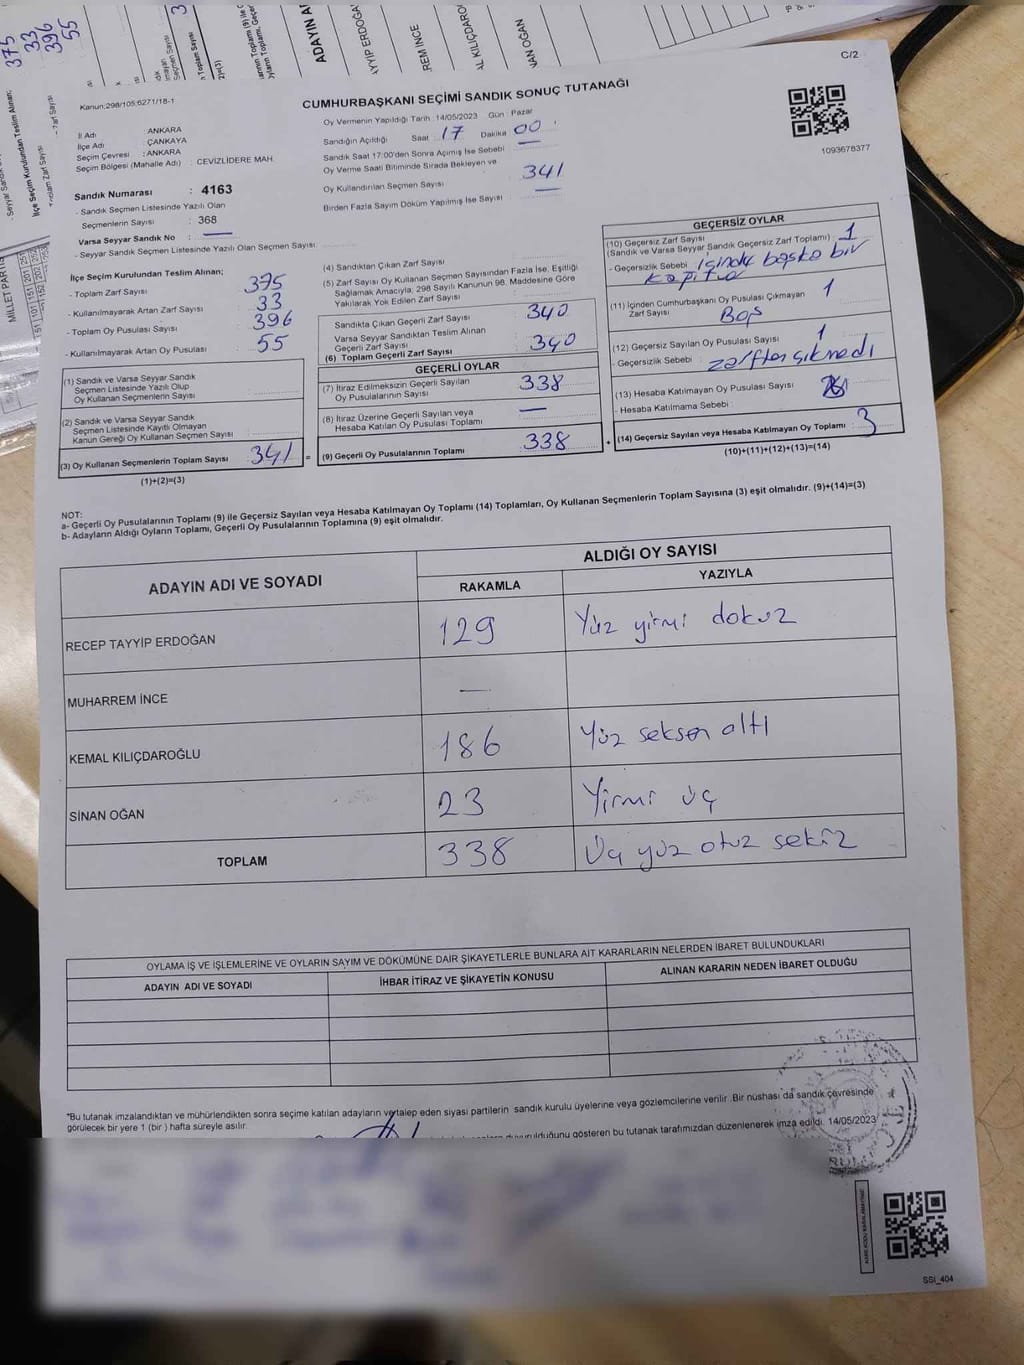 375
33
396
55
C/2
Kanun:298/105;6271/18-1
CUMHURBAŞKANI SEÇİMİ SANDIK SONUÇ TUTANAĞI
İl Adı : ANKARA
İlçe Adı : ÇANKAYA
Seçim Çevresi : ANKARA
Seçim Bölgesi (Mahalle Adı) : CEVİZLİDERE MAH.
Sandık Numarası : 4163
- Sandık Seçmen Listesinde Yazılı Olan
Seçmenlerin Sayısı : 368
Varsa Seyyar Sandık No : —
- Seyyar Sandık Seçmen Listesinde Yazılı Olan Seçmen Sayısı:
Oy Vermenin Yapıldığı Tarih :14/05/2023 Gün : Pazar
Sandığın Açıldığı Saat 17 Dakika 00
Sandık Saat 17:00'den Sonra Açımış İse Sebebi : —
Oy Verme Saati Bitiminde Sırada Bekleyen ve
Oy Kullandırılan Seçmen Sayısı : 341
Birden Fazla Sayım Döküm Yapılmış İse Sayısı : —
1093678377
İlçe Seçim Kurulundan Teslim Alınan;
- Toplam Zarf Sayısı : 375
- Kullanılmayarak Artan Zarf Sayısı : 33
- Toplam Oy Pusulası Sayısı : 396
- Kullanılmayarak Artan Oy Pusulası : 55
(1) Sandık ve Varsa Seyyar Sandık
Seçmen Listesinde Yazılı Olup
Oy Kullanan Seçmenlerin Sayısı
(2) Sandık ve Varsa Seyyar Sandık
Seçmen Listesinde Kayıtlı Olmayan
Kanun Gereği Oy Kullanan Seçmen Sayısı
(3) Oy Kullanan Seçmenlerin Toplam Sayısı 341 =
(1)+(2)=(3)
(4) Sandıktan Çıkan Zarf Sayısı
(5) Zarf Sayısı Oy Kullanan Seçmen Sayısından Fazla İse, Eşitliği
Sağlamak Amacıyla, 298 Sayılı Kanunun 98. Maddesine Göre
Yakılarak Yok Edilen Zarf Sayısı
Sandıkta Çıkan Geçerli Zarf Sayısı : 340
Varsa Seyyar Sandıktan Teslim Alınan
Geçerli Zarf Sayısı
(6) Toplam Geçerli Zarf Sayısı : 340
GEÇERLİ OYLAR
(7) İtiraz Edilmeksizin Geçerli Sayılan
Oy Pusulalarının Sayısı : 338
(8) İtiraz Üzerine Geçerli Sayılan veya
Hesaba Katılan Oy Pusulası Toplamı : —
(9) Geçerli Oy Pusulalarının Toplamı : 338 +
GEÇERSİZ OYLAR
(10) Geçersiz Zarf Sayısı
(Sandık ve Varsa Seyyar Sandık Geçersiz Zarf Toplamı) : 1
- Geçersizlik Sebebi : içinde başka bir
(11) İçinden Cumhurbaşkanı Oy Pusulası Çıkmayan
Zarf Sayısı : 1
Boş
(12) Geçersiz Sayılan Oy Pusulası Sayısı : 1
- Geçersizlik Sebebi : zarftan çıkmadı
(13) Hesaba Katılmayan Oy Pusulası Sayısı
- Hesaba Katılmama Sebebi :
(14) Geçersiz Sayılan veya Hesaba Katılmayan Oy Toplamı : 3
(10)+(11)+(12)+(13)=(14)
NOT:
a- Geçerli Oy Pusulalarının Toplamı (9) ile Geçersiz Sayılan veya Hesaba Katılmayan Oy Toplamı (14) Toplamları, Oy Kullanan Seçmenlerin Toplam Sayısına (3) eşit olmalıdır. (9)+(14)=(3)
b- Adayların Aldığı Oyların Toplamı, Geçerli Oy Pusulalarının Toplamına (9) eşit olmalıdır.
ADAYIN ADI VE SOYADI
ALDIĞI OY SAYISI
RAKAMLA YAZIYLA
RECEP TAYYİP ERDOĞAN 129 Yüz yirmi dokuz
MUHARREM İNCE —
KEMAL KILIÇDAROĞLU 186 Yüz seksen altı
SİNAN OĞAN 23 Yirmi üç
TOPLAM 338 Üç yüz otuz sekiz
OYLAMA İŞ VE İŞLEMLERİNE VE OYLARIN SAYIM VE DÖKÜMÜNE DAİR ŞİKAYETLERLE BUNLARA AİT KARARLARIN NELERDEN İBARET BULUNDUKLARI
ADAYIN ADI VE SOYADI İHBAR İTİRAZ VE ŞİKAYETİN KONUSU ALINAN KARARIN NEDEN İBARET OLDUĞU
*Bu tutanak imzalandıktan ve mühürlendikten sonra seçime katılan adayların ve talep eden siyasi partilerin sandık kurulu üyelerine veya gözlemcilerine verilir. Bir nüshası da sandık çevresinde
görülecek bir yere 1 (bir) hafta süreyle asılır.
duyurulduğunu gösteren bu tutanak tarafımızdan düzenlenerek imza edildi. 14/05/2023
SSI_404